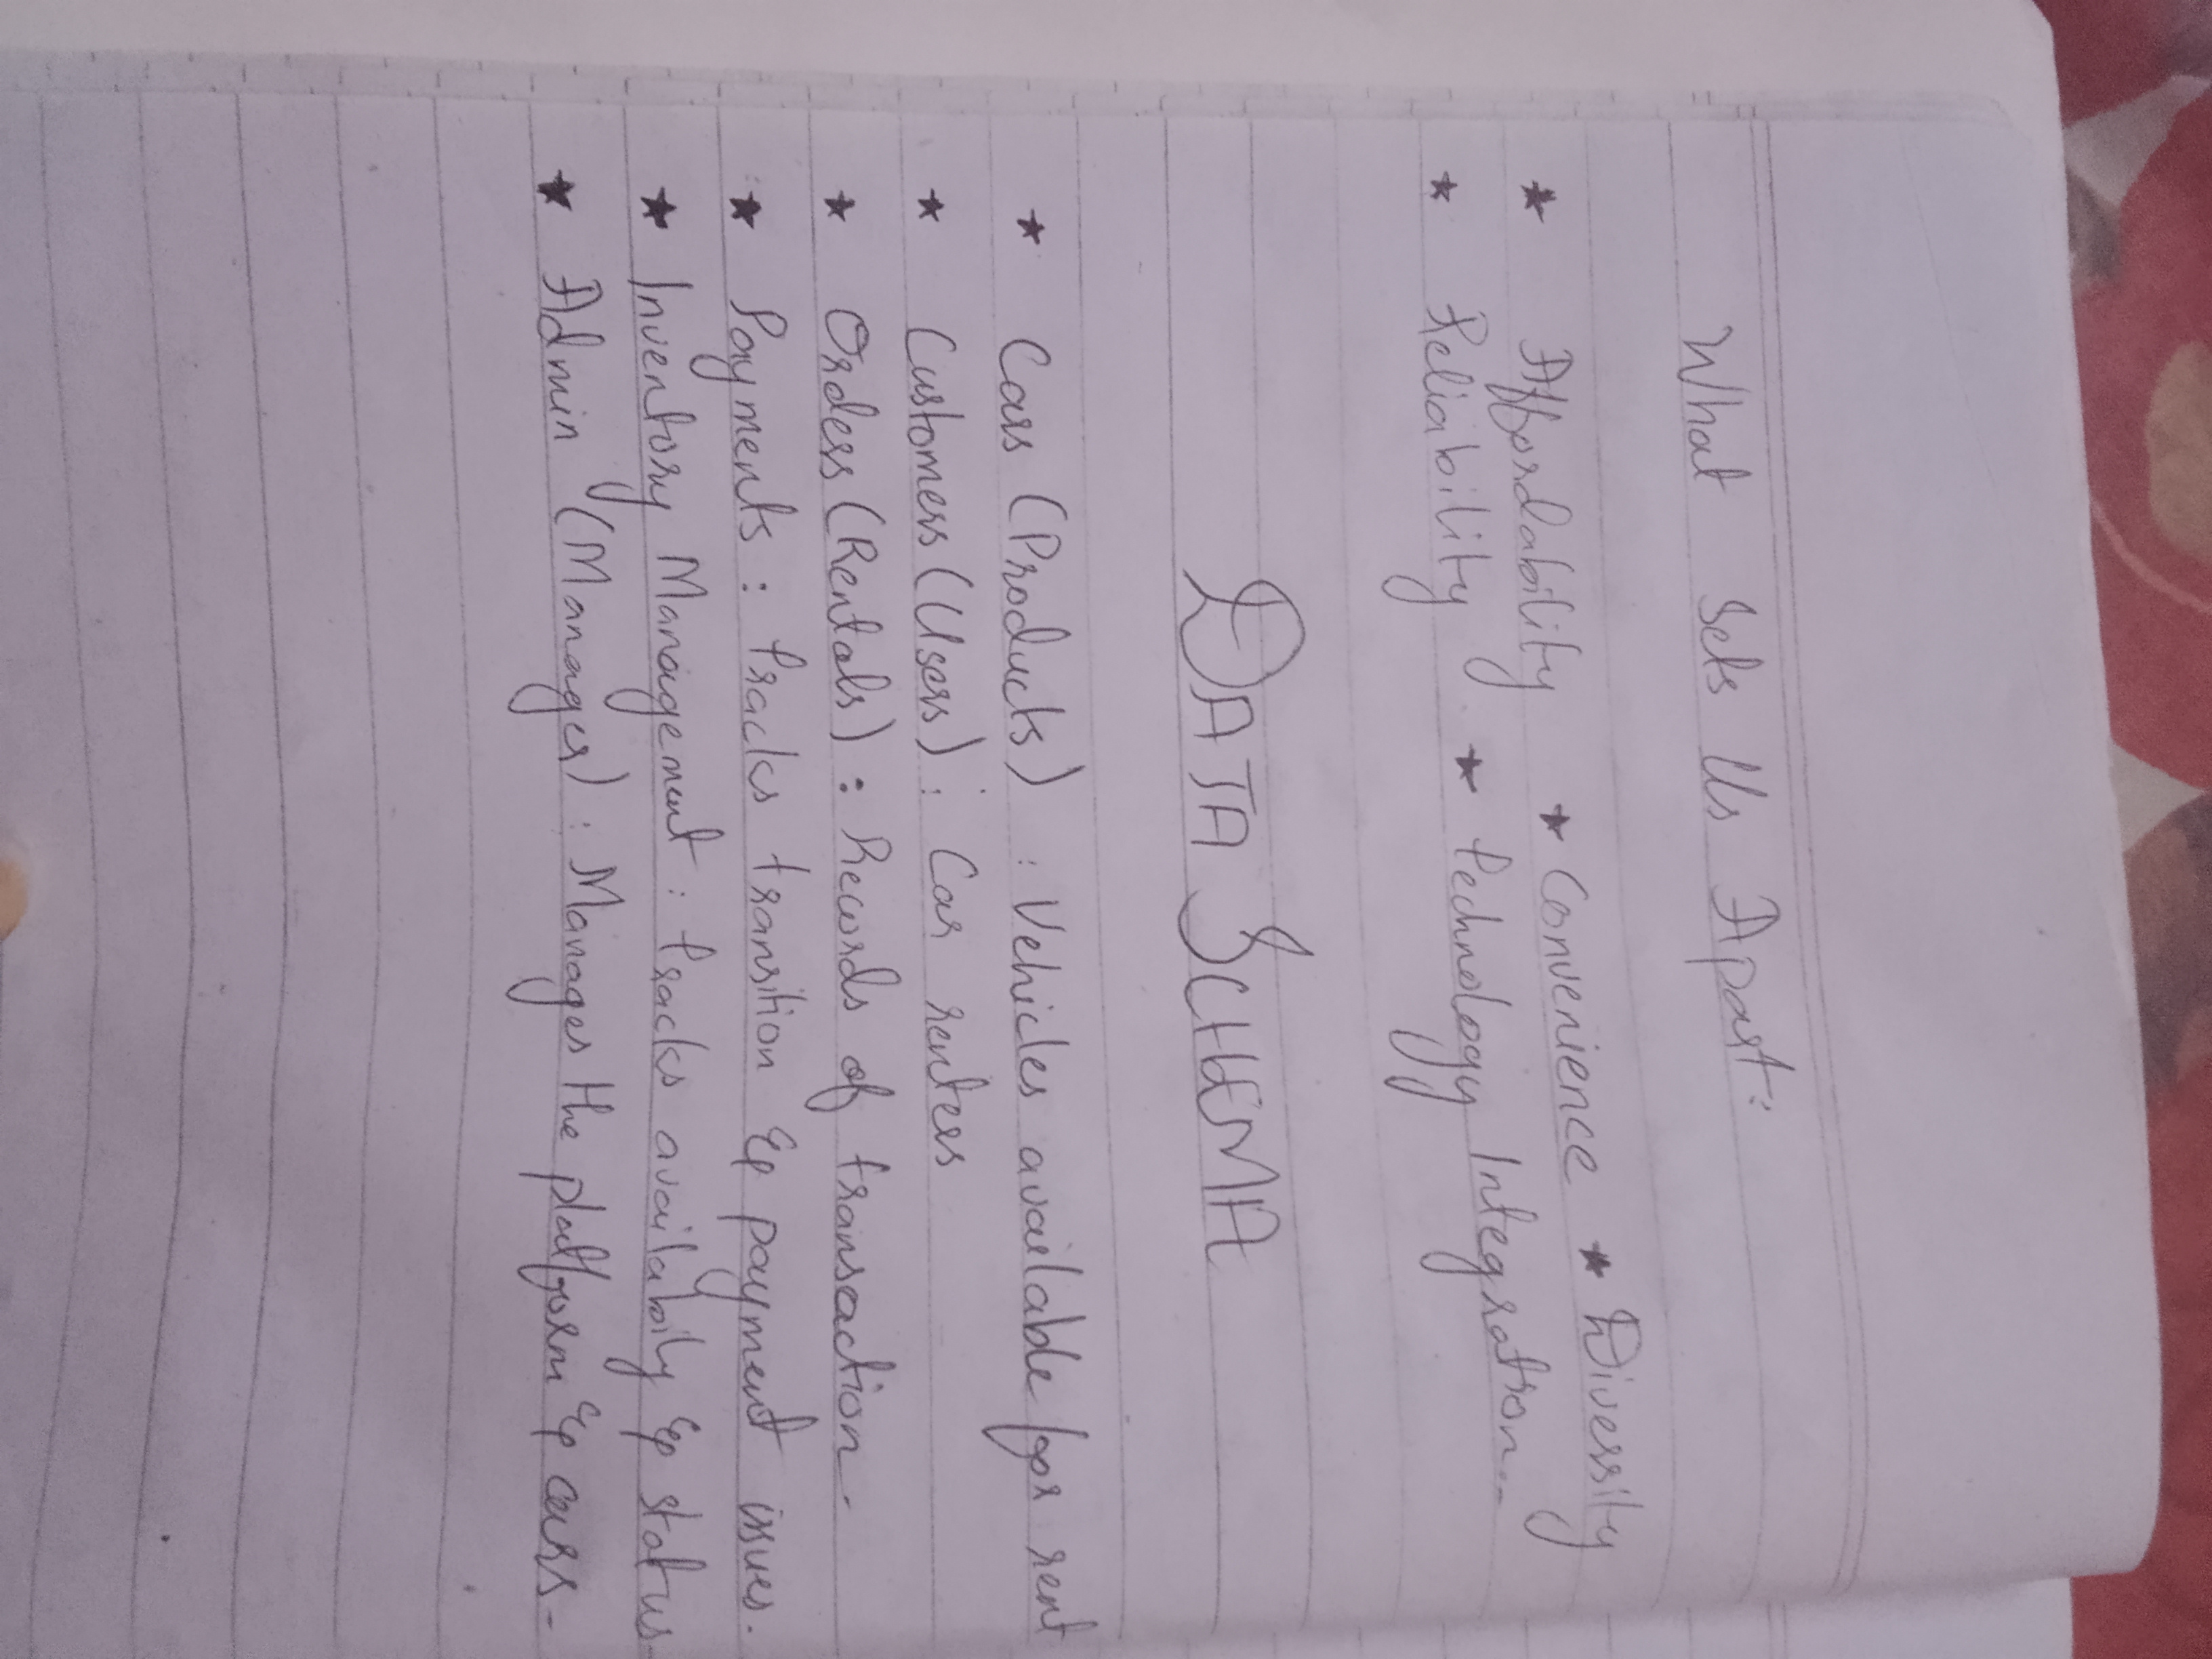 What Sets Us Apart:
★ Affordability ★ Convenience ★ Diversity
★ Reliability ★ Technology Integration.
DATA SCHEMA
★ Cars (Products) : Vehicles available for rent
★ Customers (Users) : Car renters
★ Orders (Rentals) : Records of transaction.
★ Payments : Tracks transition & payment issues.
★ Inventory Management : Tracks availabily & status
★ Admin (Manager) : Manages the platform & cars.